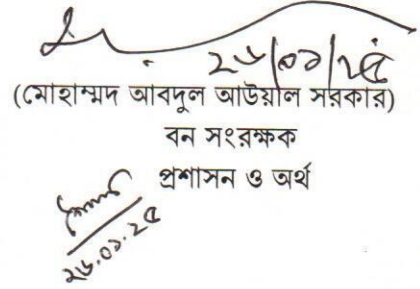 ২৬/০১/২৫
(মোহাম্মদ আবদুল আউয়াল সরকার)
বন সংরক্ষক
প্রশাসন ও অর্থ
২৬.০১.২৫